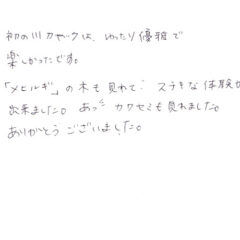 初の川カヤックは、ゆったり優雅で
楽しかったです。
「メヒルギ」の木も見れて! ステキな体験が
出来ました。あっ カワセミも見れました。
ありがとうございました。